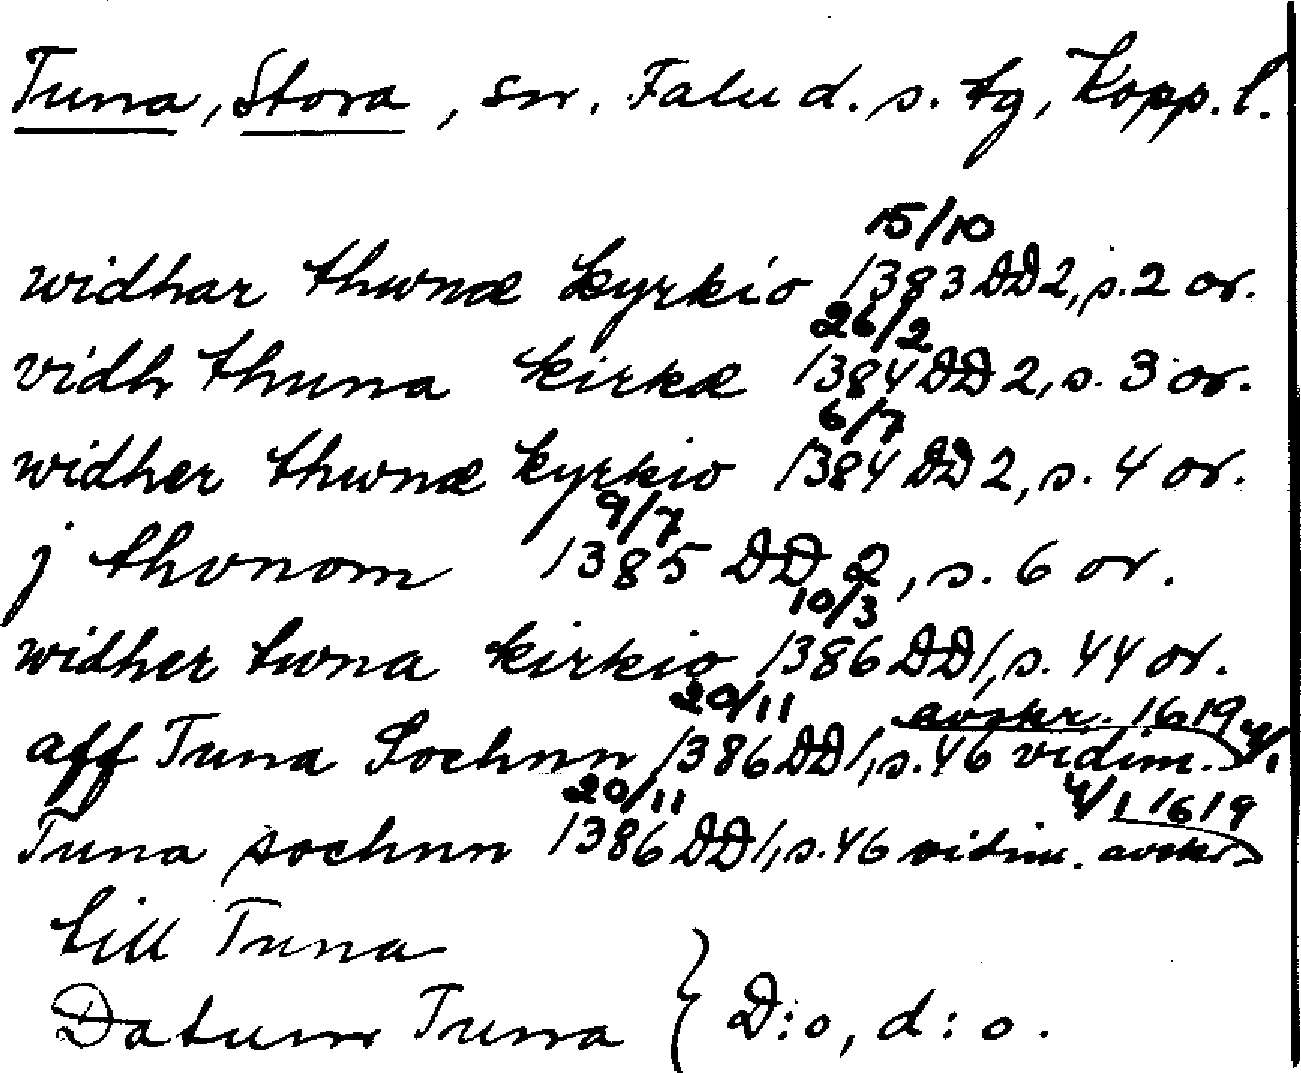 Tuna, Stora, sn. Falu d. s. tg, Kopp. l.
widhar thwnæ kyrkio 15/10 1383 DD 2, s. 2 or.
vidh thuna kirkæ 26/2 1384 DD 2, s. 3 or.
widher thwnæ kyrkio 6/7 1384 DD 2, s. 4 or.
j thvnom 9/7 1385 DD 2, s. 6 or.
widher twna kirkio 10/3 1386 DD 1, s. 44 or.
aff Tuna Sochnn 20/11 1386 DD 1, s. 46 vidim. avskr. 1619 4/1
Tuna sochnn 20/11 1386 DD 1, s. 46 vidim. avskr. 4/1 1619
till Tuna
Datum Tuna } D:o, d:o.